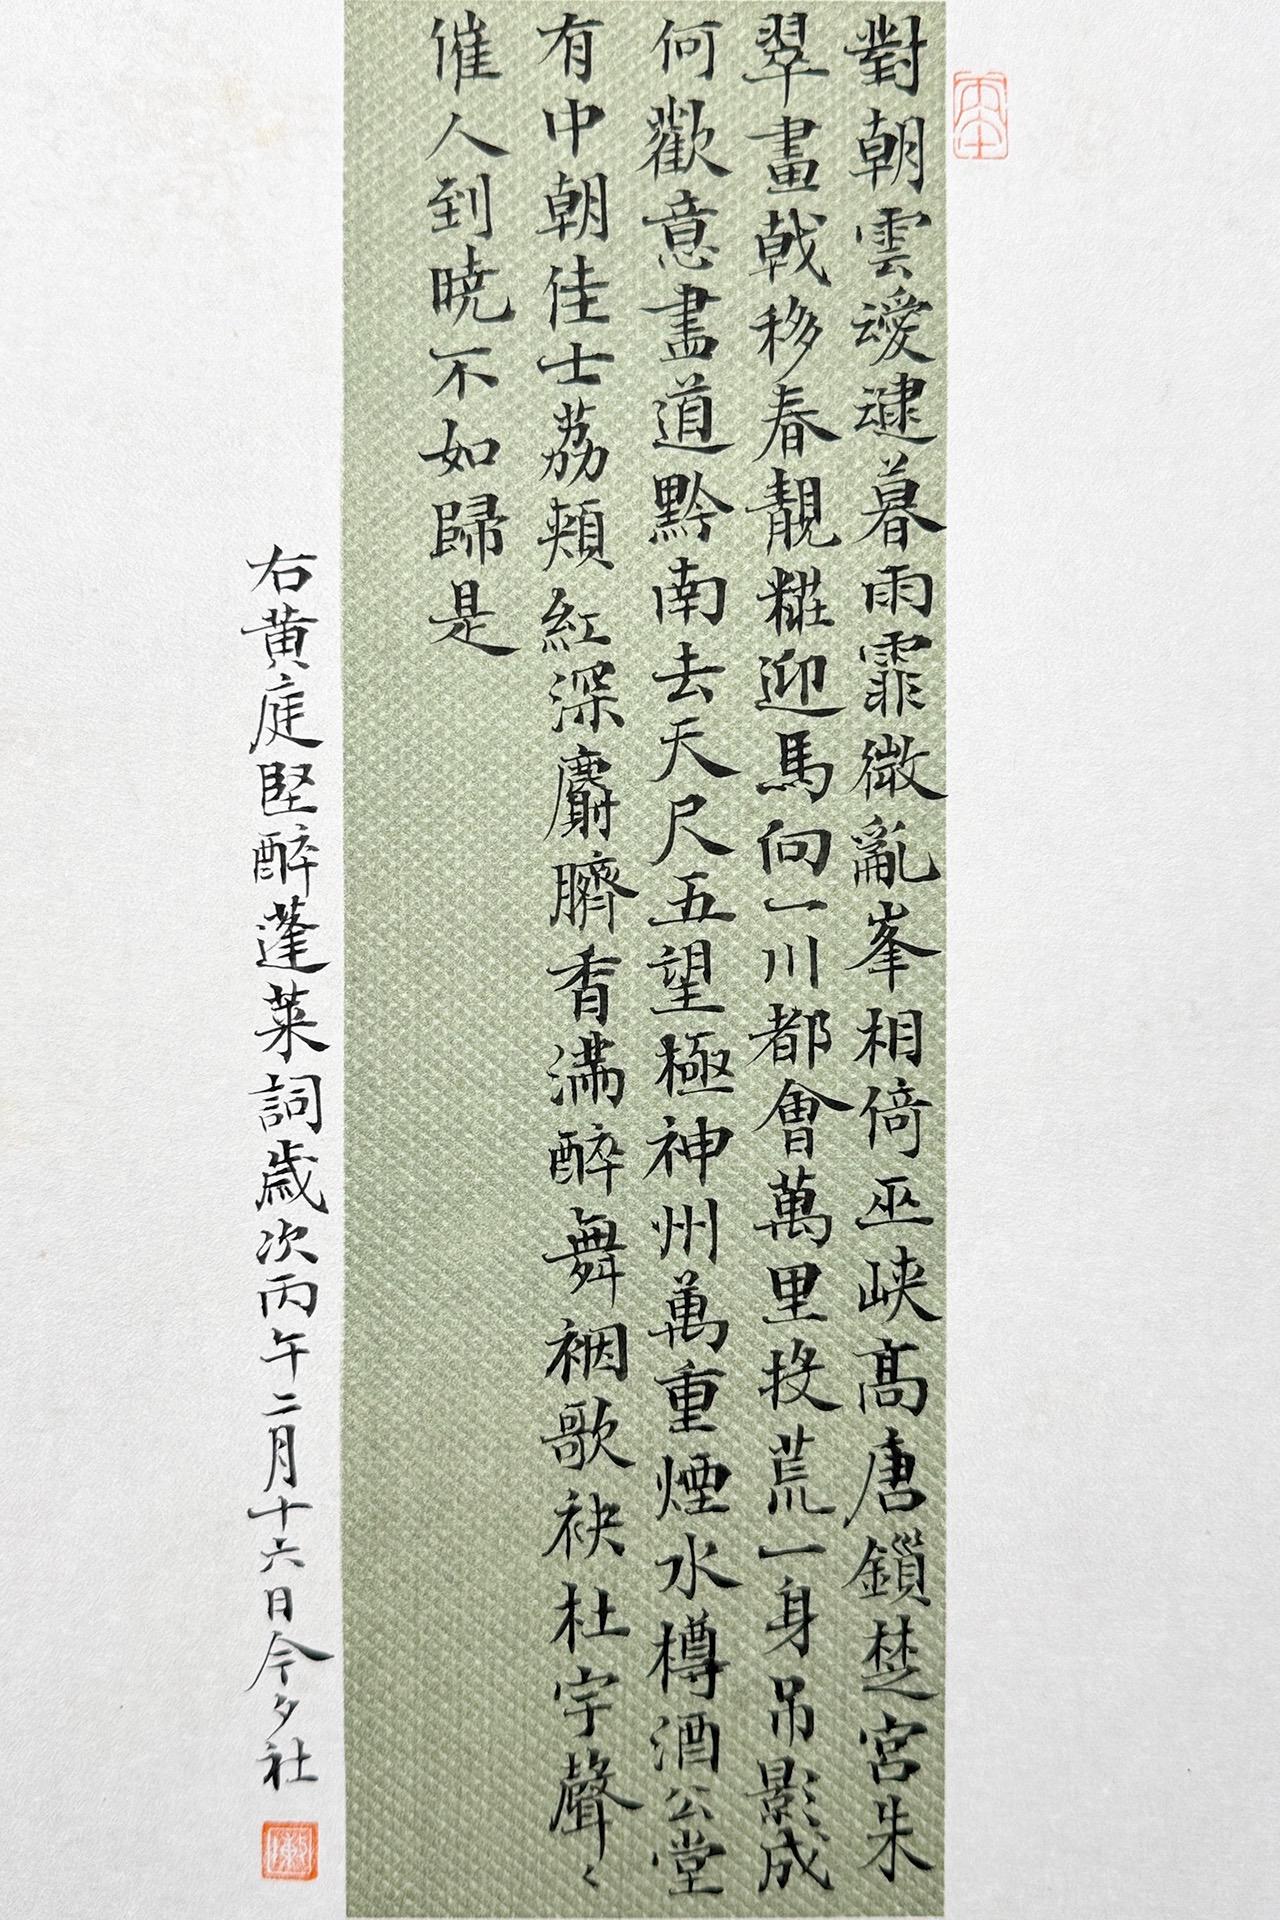 對朝雲叆叇暮雨霏微亂峯相倚巫峽髙唐鎖楚宮朱
翠畫戟移春靚糚迎馬向一川都會萬里投荒一身吊影成
何歡意盡道黔南去天尺五望極神州萬重煙水樽酒公堂
有中朝佳士荔頰紅深麝臍香滿醉舞裀歌袂杜宇聲〻
催人到曉不如歸是
右黃庭堅醉蓬萊詞歲次丙午二月十六日今夕社